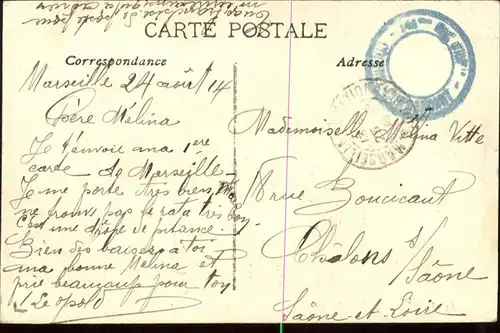 CARTE POSTALE
Correspondance
Adresse
Marseille 24 août 14
Chère Mélina
Je t'envoie ma 1ere
carte de Marseille
Je me porte très bien,
ne trouve pas le rata très bon
C'est une drôle de pitance.
Bien des baisers à toi
ma bonne Mélina et
prie beaucoup pour toy
Léopold
Mademoiselle Mélina Vitte
18 rue Boucicaut
Châlons s/
Saône
Saône-et-Loire
MARSEILLE